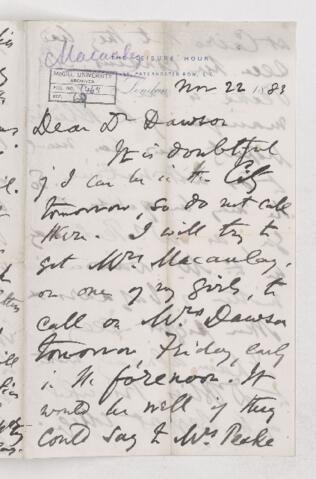 Macaulay
THE LEISURE HOUR
PATERNOSTER ROW, E.C.
McGILL UNIVERSITY
ARCHIVES
ACC. NO. 1464
REF.
London Nov 22 1883
Dear Dr Dawson
It is doubtful
if I can be in the City
tomorrow, so do not call
there. I will try to
get Mrs Macaulay,
or one of my girls, to
call on Mrs Dawson
tomorrow Friday, early
in the forenoon. It
would be well if they
could say to Mrs Peake